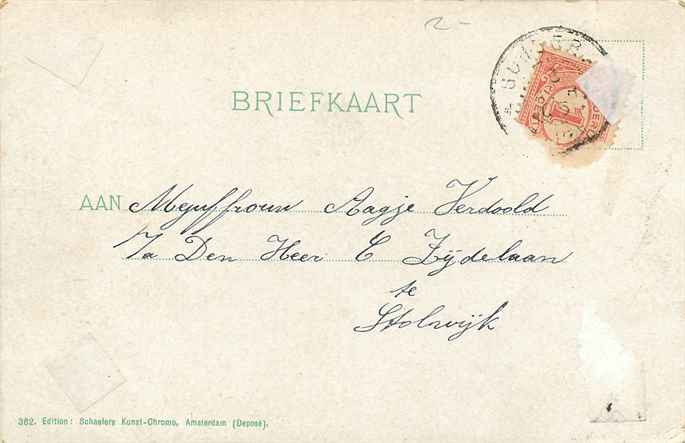 2-
BRIEFKAART
1
AAN Mejuffrouw Aagje Verdoold
p/a Den Heer C Zijdelaan
te
Stolwijk
362. Edition: Schaefers Kunst-Chromo, Amsterdam (Deposé).